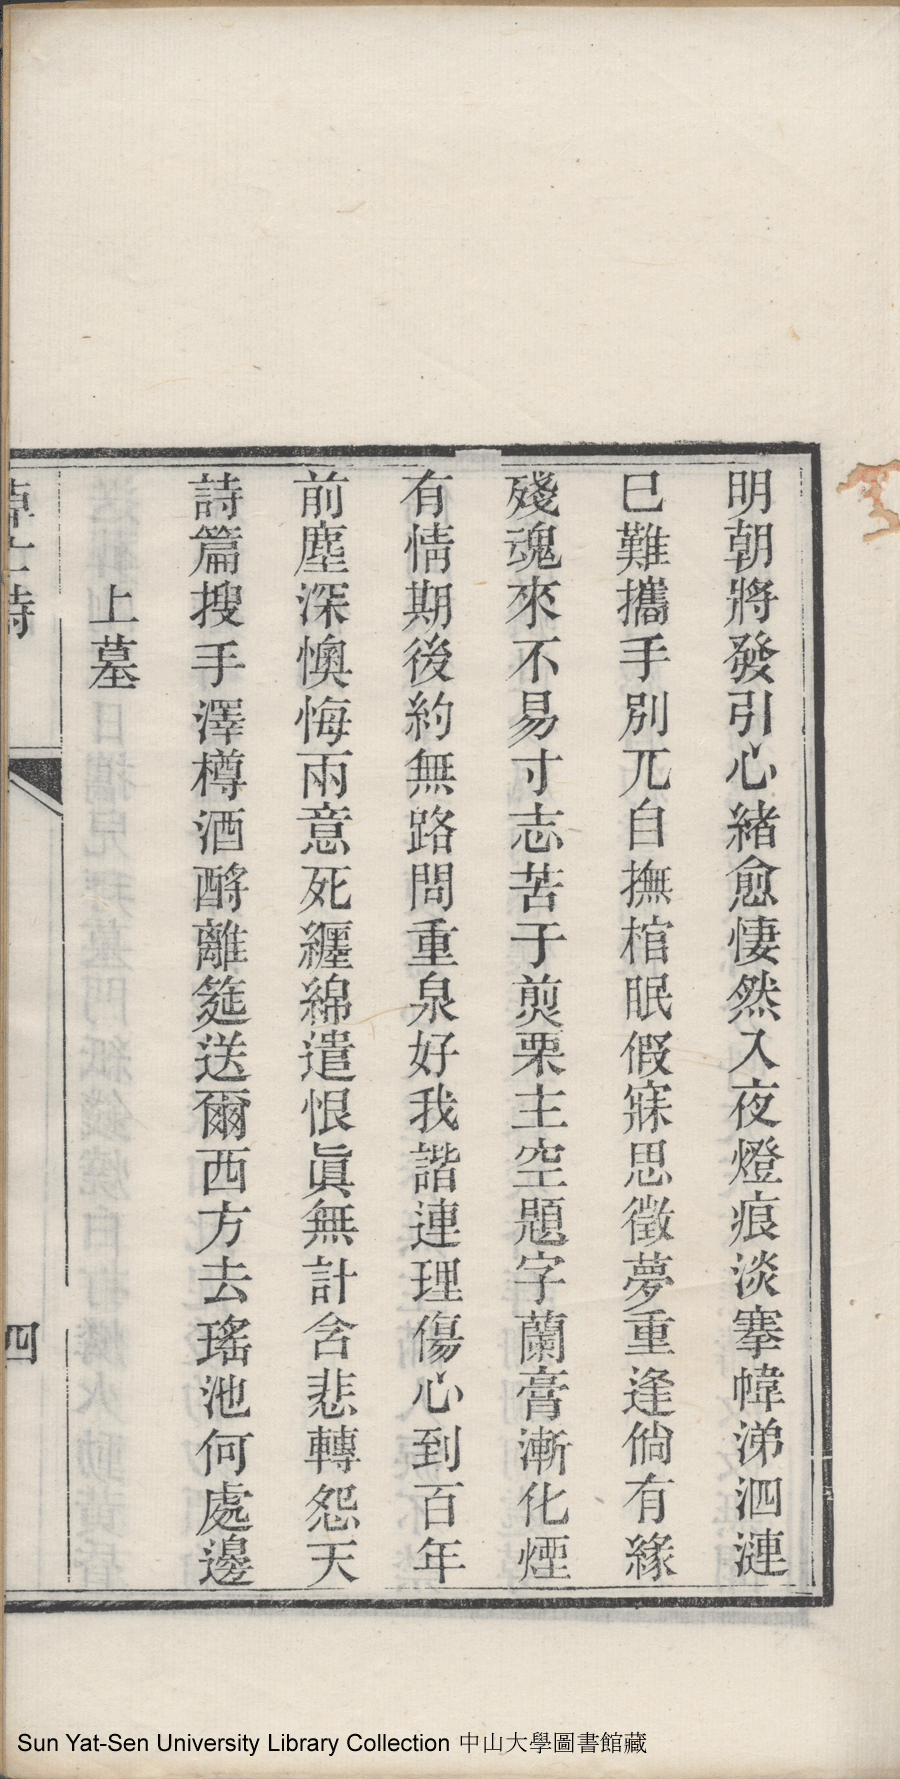 明朝將發引心緒愈悽然入夜燈痕淡搴幃涕泗漣
巳難攜手別兀自撫棺眠假寐思徵夢重逢倘有緣
殘魂來不易寸志苦于煎栗主空題字蘭膏漸化煙
有情期後約無路問重泉好我諧連理傷心到百年
前塵深懊悔兩意死纏綿遣恨眞無計含悲轉怨天
詩篇搜手澤樽酒酹離筵送爾西方去瑤池何處邊
上墓
悼亡詩
四
Sun Yat-Sen University Library Collection 中山大學圖書館藏